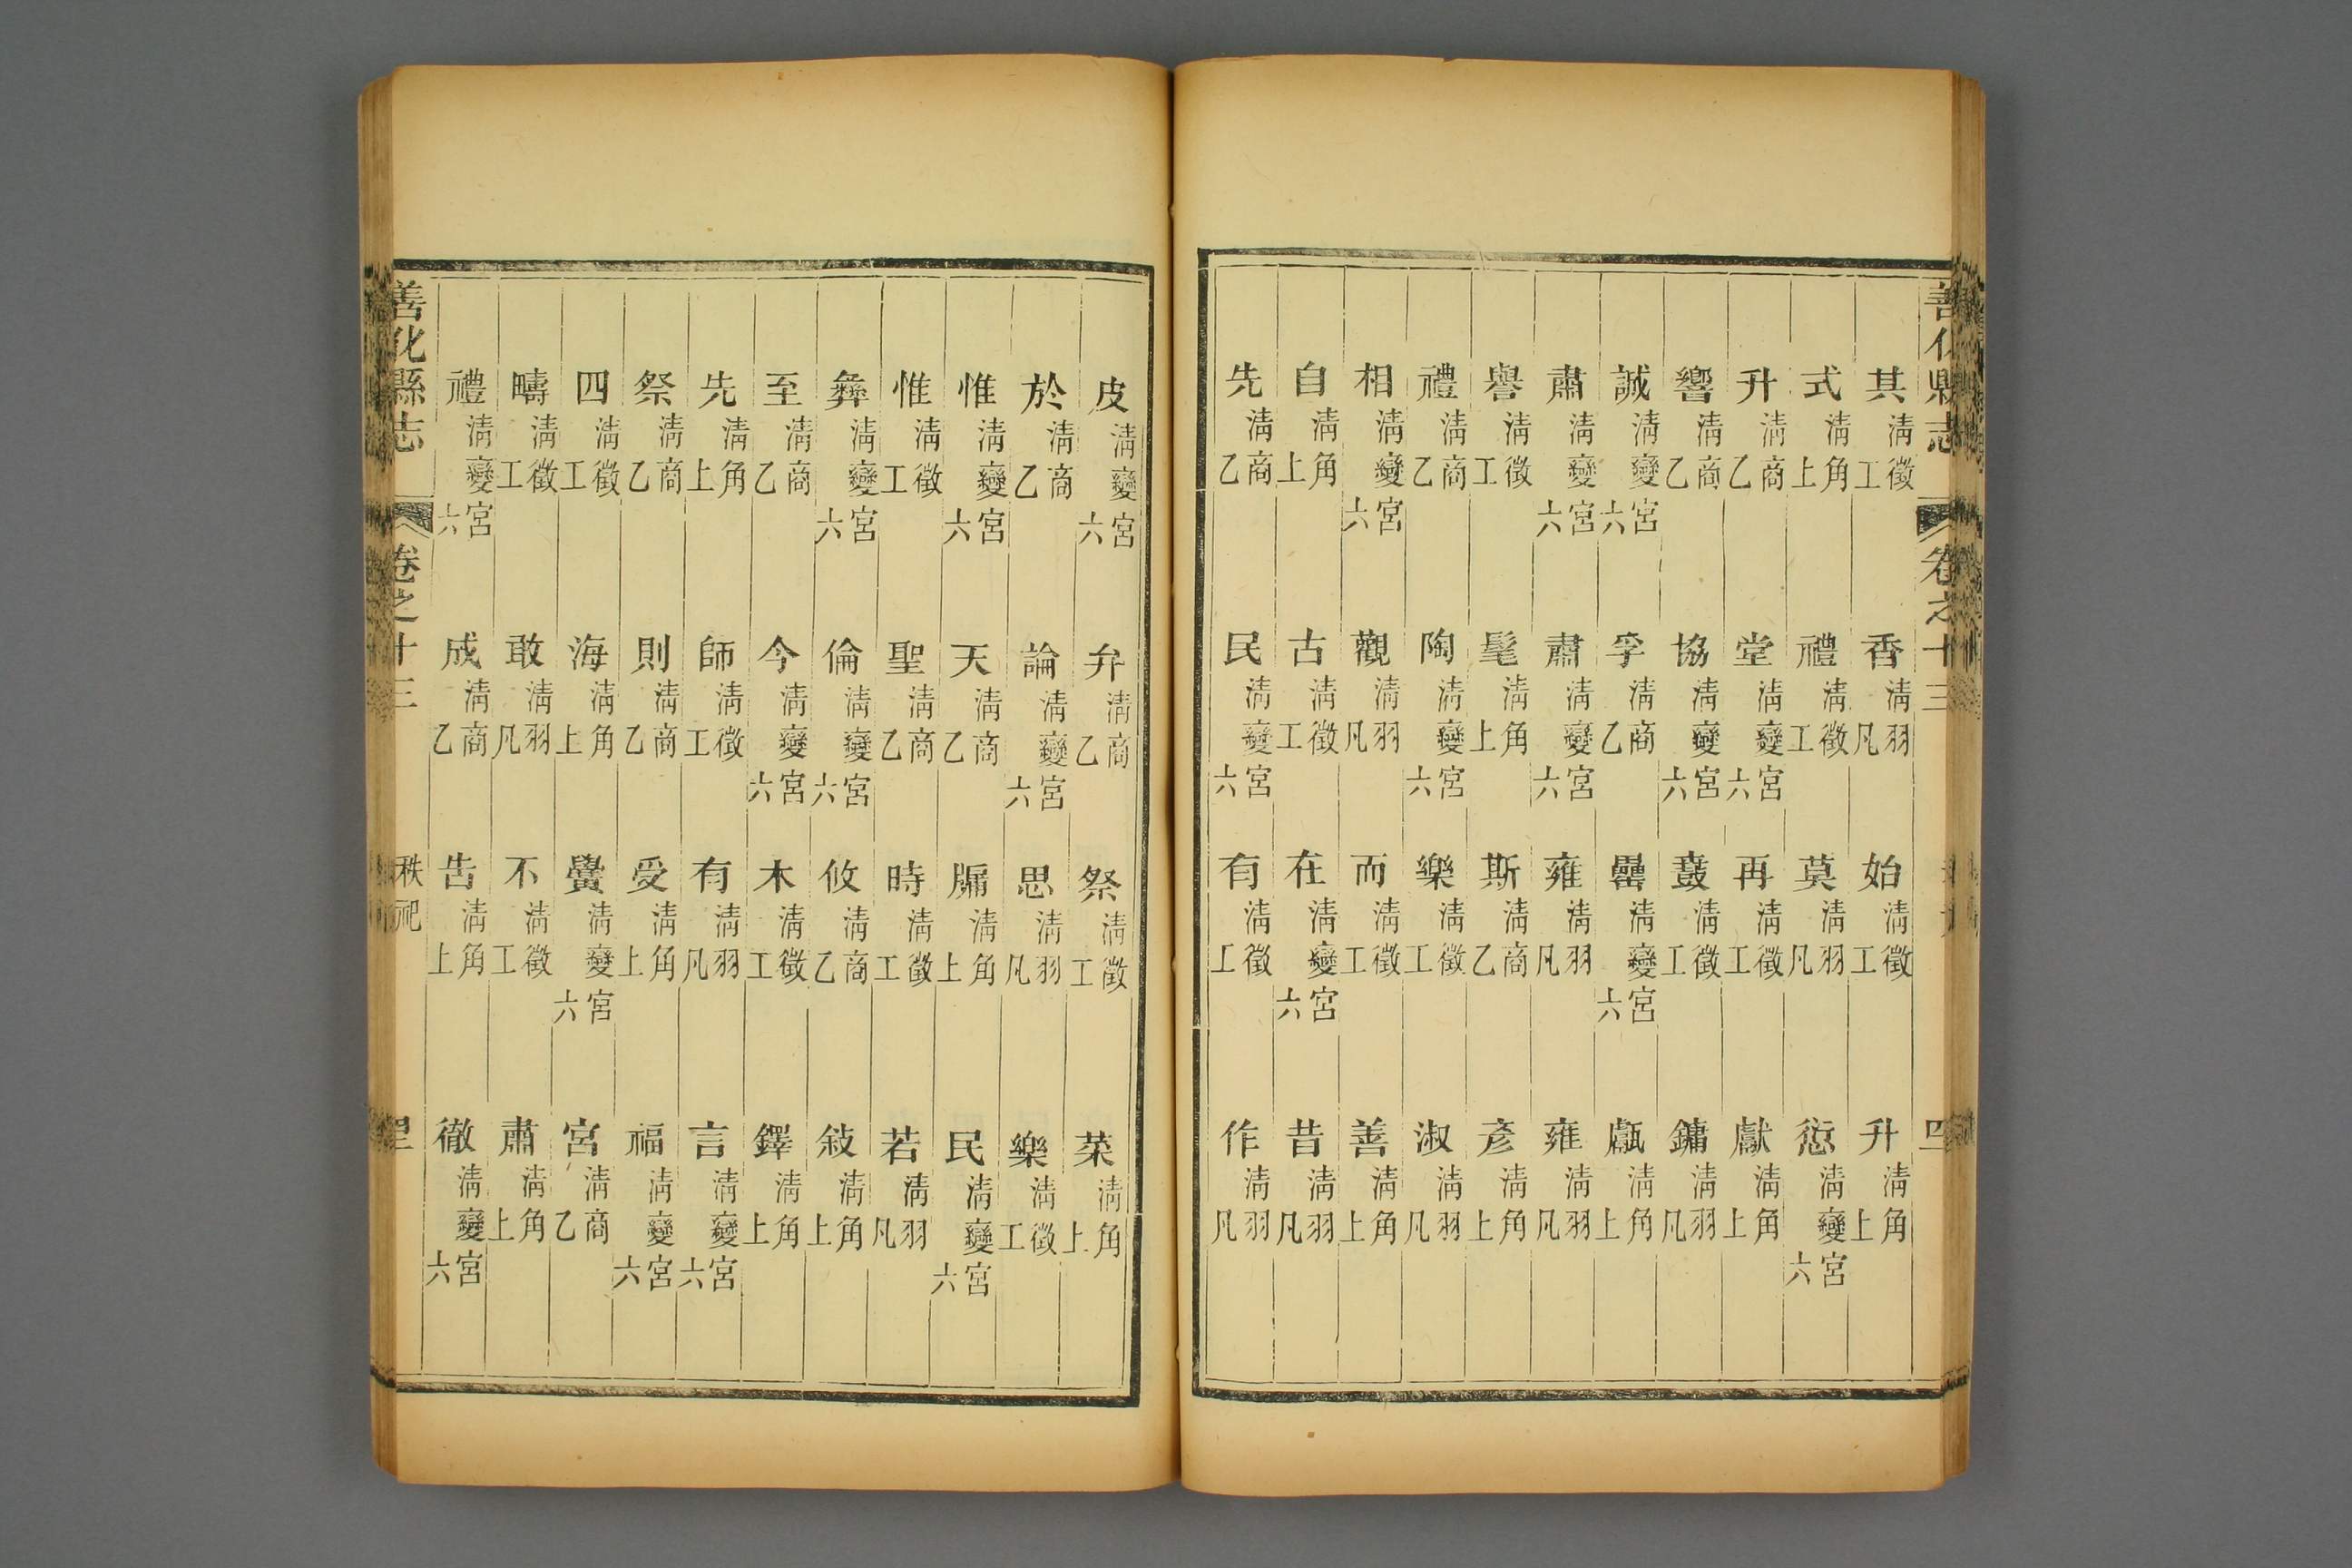 善化縣志 卷之十三
其清徵工 香清羽凡 始清徵工 升清角上
式清角上 禮清徵工 莫清羽凡 愆清變宮六
升清商乙 堂清變宮六 再清徵工 獻清角上
響清商乙 協清變宮六 鼖清徵工 鏞清羽凡
誠清變宮六 孚清商乙 罍清變宮六 甗清角上
肅清變宮六 肅清變宮六 雍清羽凡 雍清羽凡
譽清徵工 髦清角上 斯清商乙 彥清角上
禮清商乙 陶清變宮六 樂清徵工 淑清羽凡
相清變宮六 觀清羽凡 而清徵工 善清角上
自清角上 古清徵工 在清變宮六 昔清羽凡
先清商乙 民清變宮六 有清徵工 作清羽凡
皮清變宮六 弁清商乙 祭清徵工 菜清角上
於清商乙 論清變宮六 思清羽凡 樂清徵工
惟清變宮六 天清商乙 牖清角上 民清變宮六
惟清徵工 聖清商乙 時清徵工 若清羽凡
彝清變宮六 倫清變宮六 攸清商乙 敍清角上
至清商乙 今清變宮六 木清徵工 鐸清角上
先清角上 師清徵工 有清羽凡 言清變宮六
祭清商乙 則清商乙 受清角上 福清變宮六
四清徵工 海清角上 黌清變宮六 宮清商乙
疇清徵工 敢清羽凡 不清徵工 肅清角上
禮清變宮六 成清商乙 告清角上 徹清變宮六
善化縣志 卷之十三 秩祀